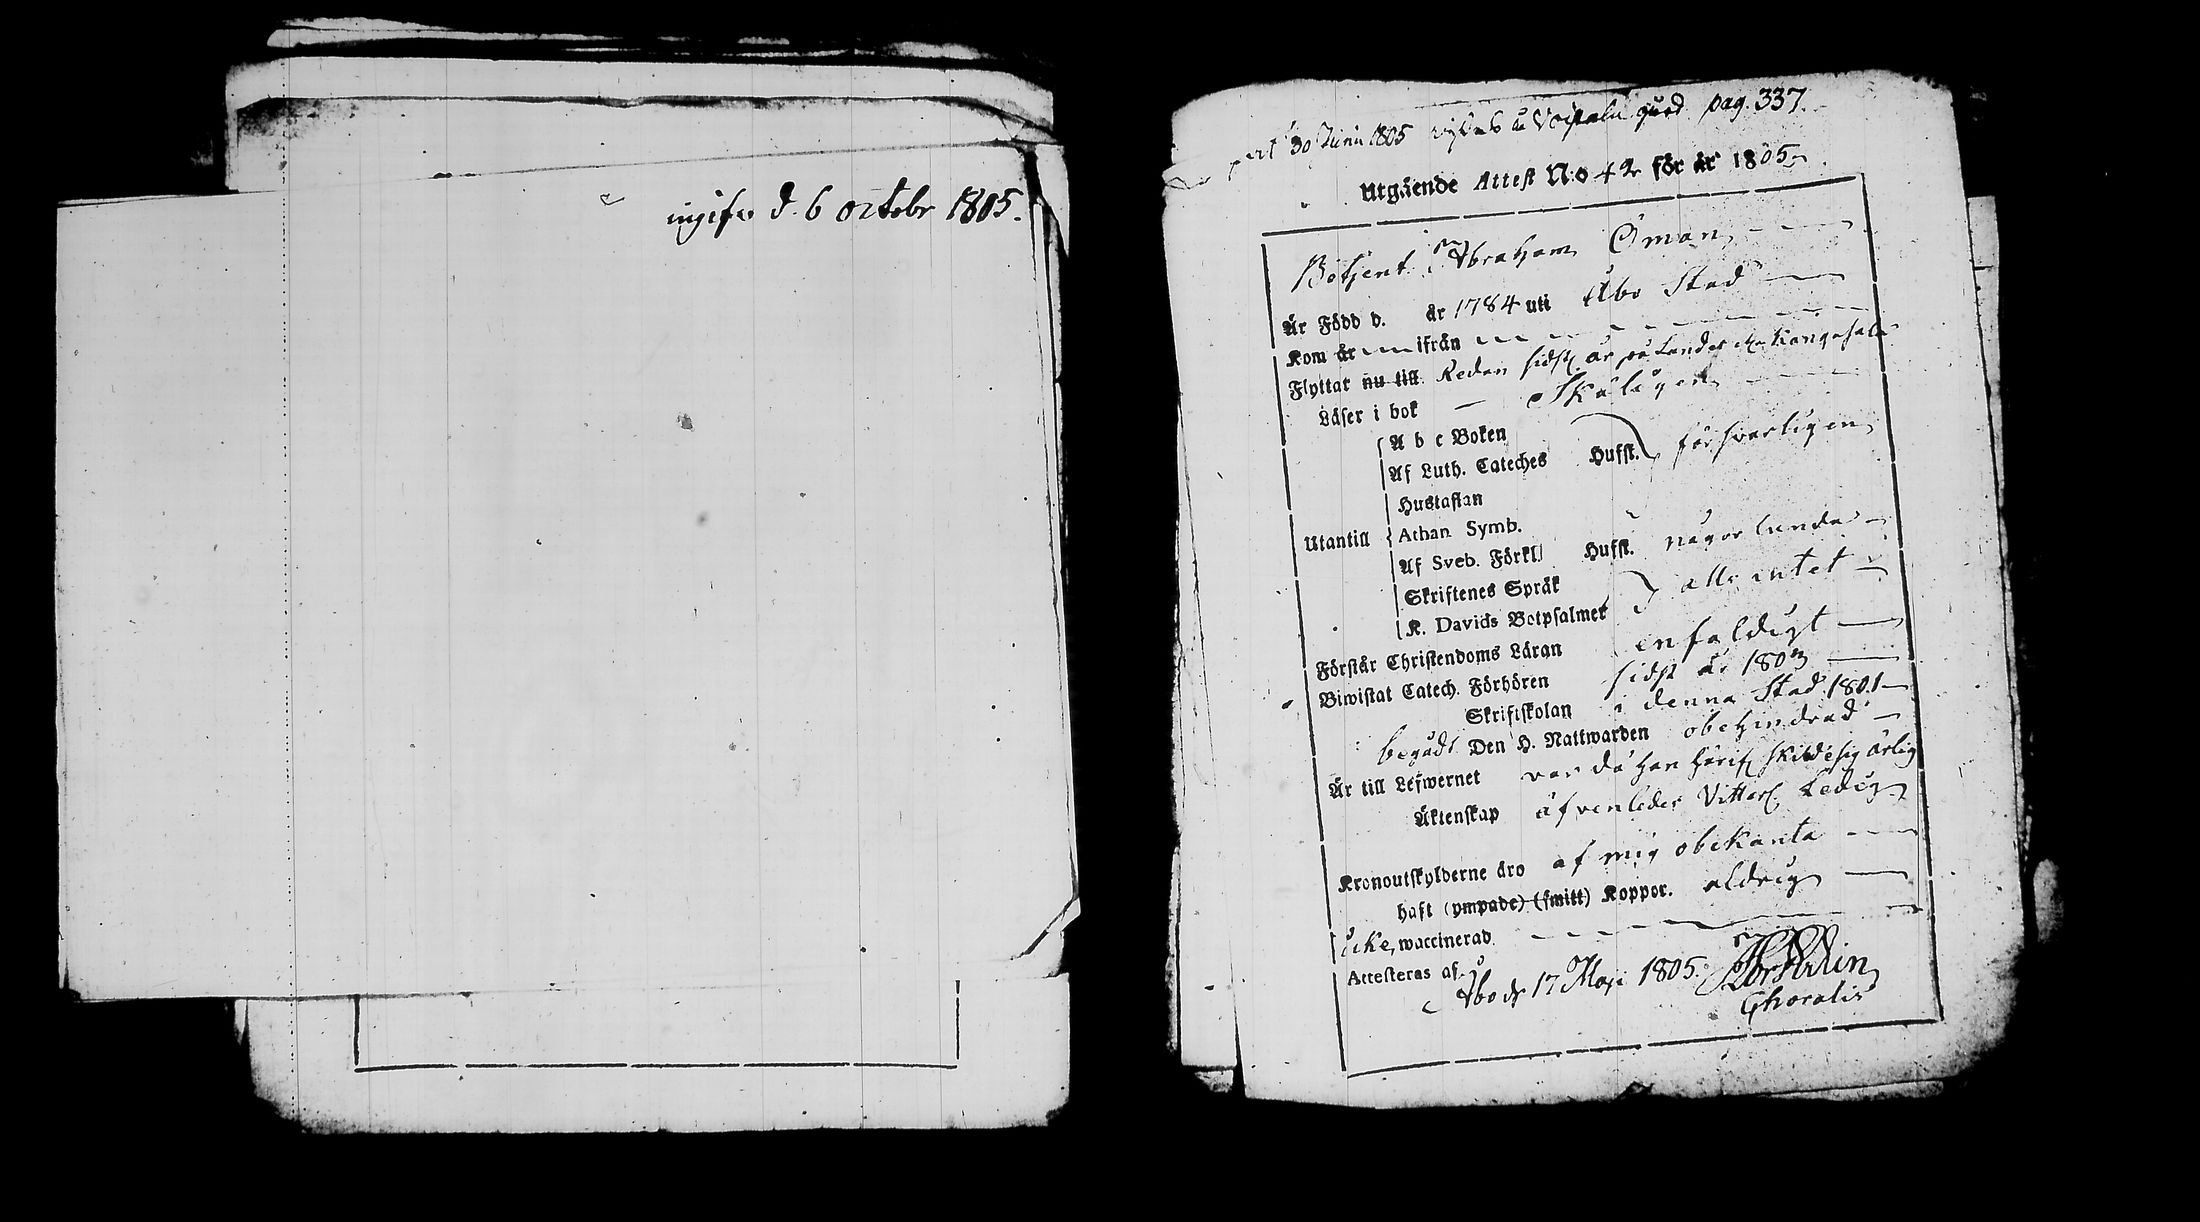 ingifv. d. 6 octobr 1805.
30 Junii 1805 pag. 337.
Utgående Attest N:o 42 för år 1805
Betjent Abraham Öman
Är Född d. år 1784 uti Åbo Stad
Kom år ifrån
Flyttar nu till Redan sidst. år på Landet Kangasala
Läser i bok Skäligen
A b c Boken
Af Luth. Cateches Husst. försvarligen
Hustaflan
Utantill Athan Symb.
Af Sveb. Förkl. Husst. någorlunda
Skriftenes Språk
K. Davids Botpsalmer alls intet
Förstår Christendoms Läran enfaldigt
Biwistat Catech. Förhören sidst år 1803
Skriftskolan i denna Stad 1801
begådt Den H. Nattwarden obehindrad
Är till Lefwernet var då han härif. skilde sig ärlig
Äktenskap äfvenledes Ledig
Kronoutskylderne äro af mig obekanta
haft (ympade) (smitt) Koppor. aldrig
icke waccinerad
Attesteras af
Åbo d. 17 Maji 1805.
Choralis